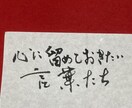 心に留めておきたい
言葉たち